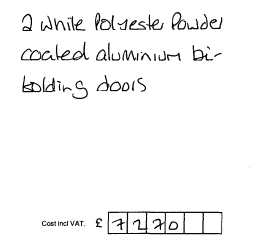 2 White Polyester Powder
coated aluminium bi-
folding doors
Cost incl VAT. £ 7270